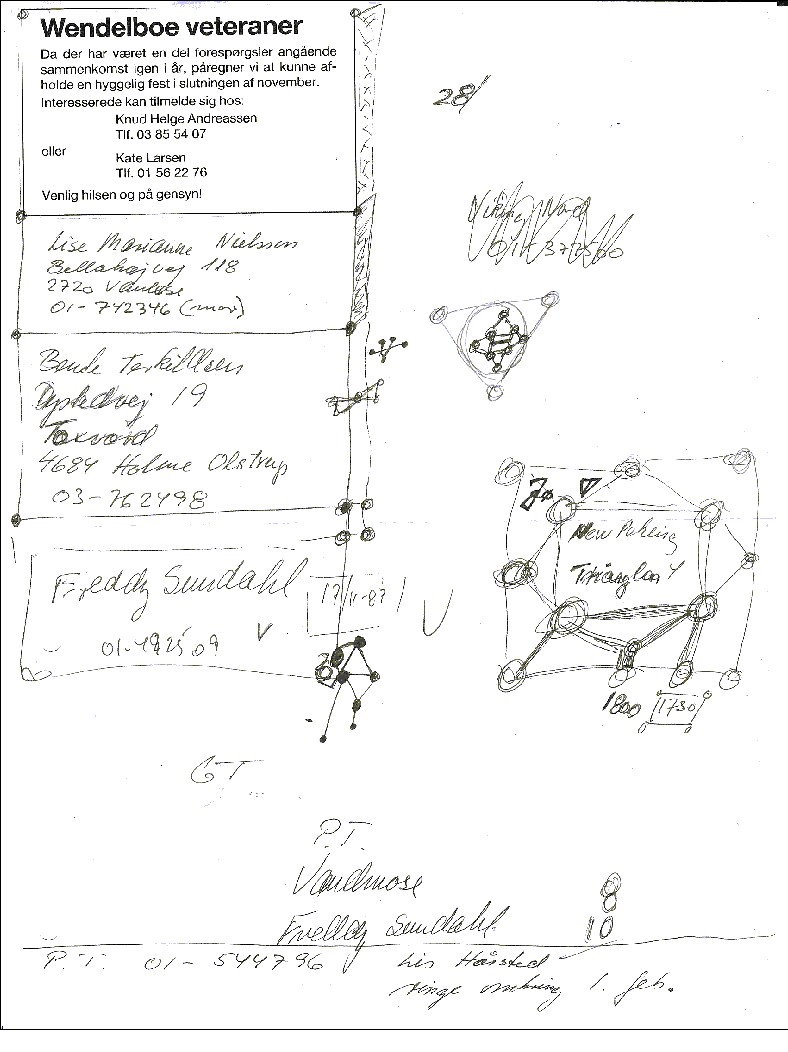 Wendelboe veteraner
Da der har været en del forespørgsler angående
sammenkomst igen i år, påregner vi at kunne af-
holde en hyggelig fest i slutningen af november.
Interesserede kan tilmelde sig hos:
Knud Helge Andreassen
Tlf. 03 85 54 07
eller
Kate Larsen
Tlf. 01 56 22 76
Venlig hilsen og på gensyn!
28/
Nord
Lise Marianne Nielsen
Bellahøjvej 118
2720 Vanløse
01-742346 (mor)
Bende
19
4684 Holme Olstrup
03-762498
New Peking
Trianglen 4
Freddy Sundahl
17/11-87
01-192509
1800
1730
GT
P.T.
Vandmose
8
Freddy Sundahl
10
P.T. 01-544796
ringe omkring 1. feb.